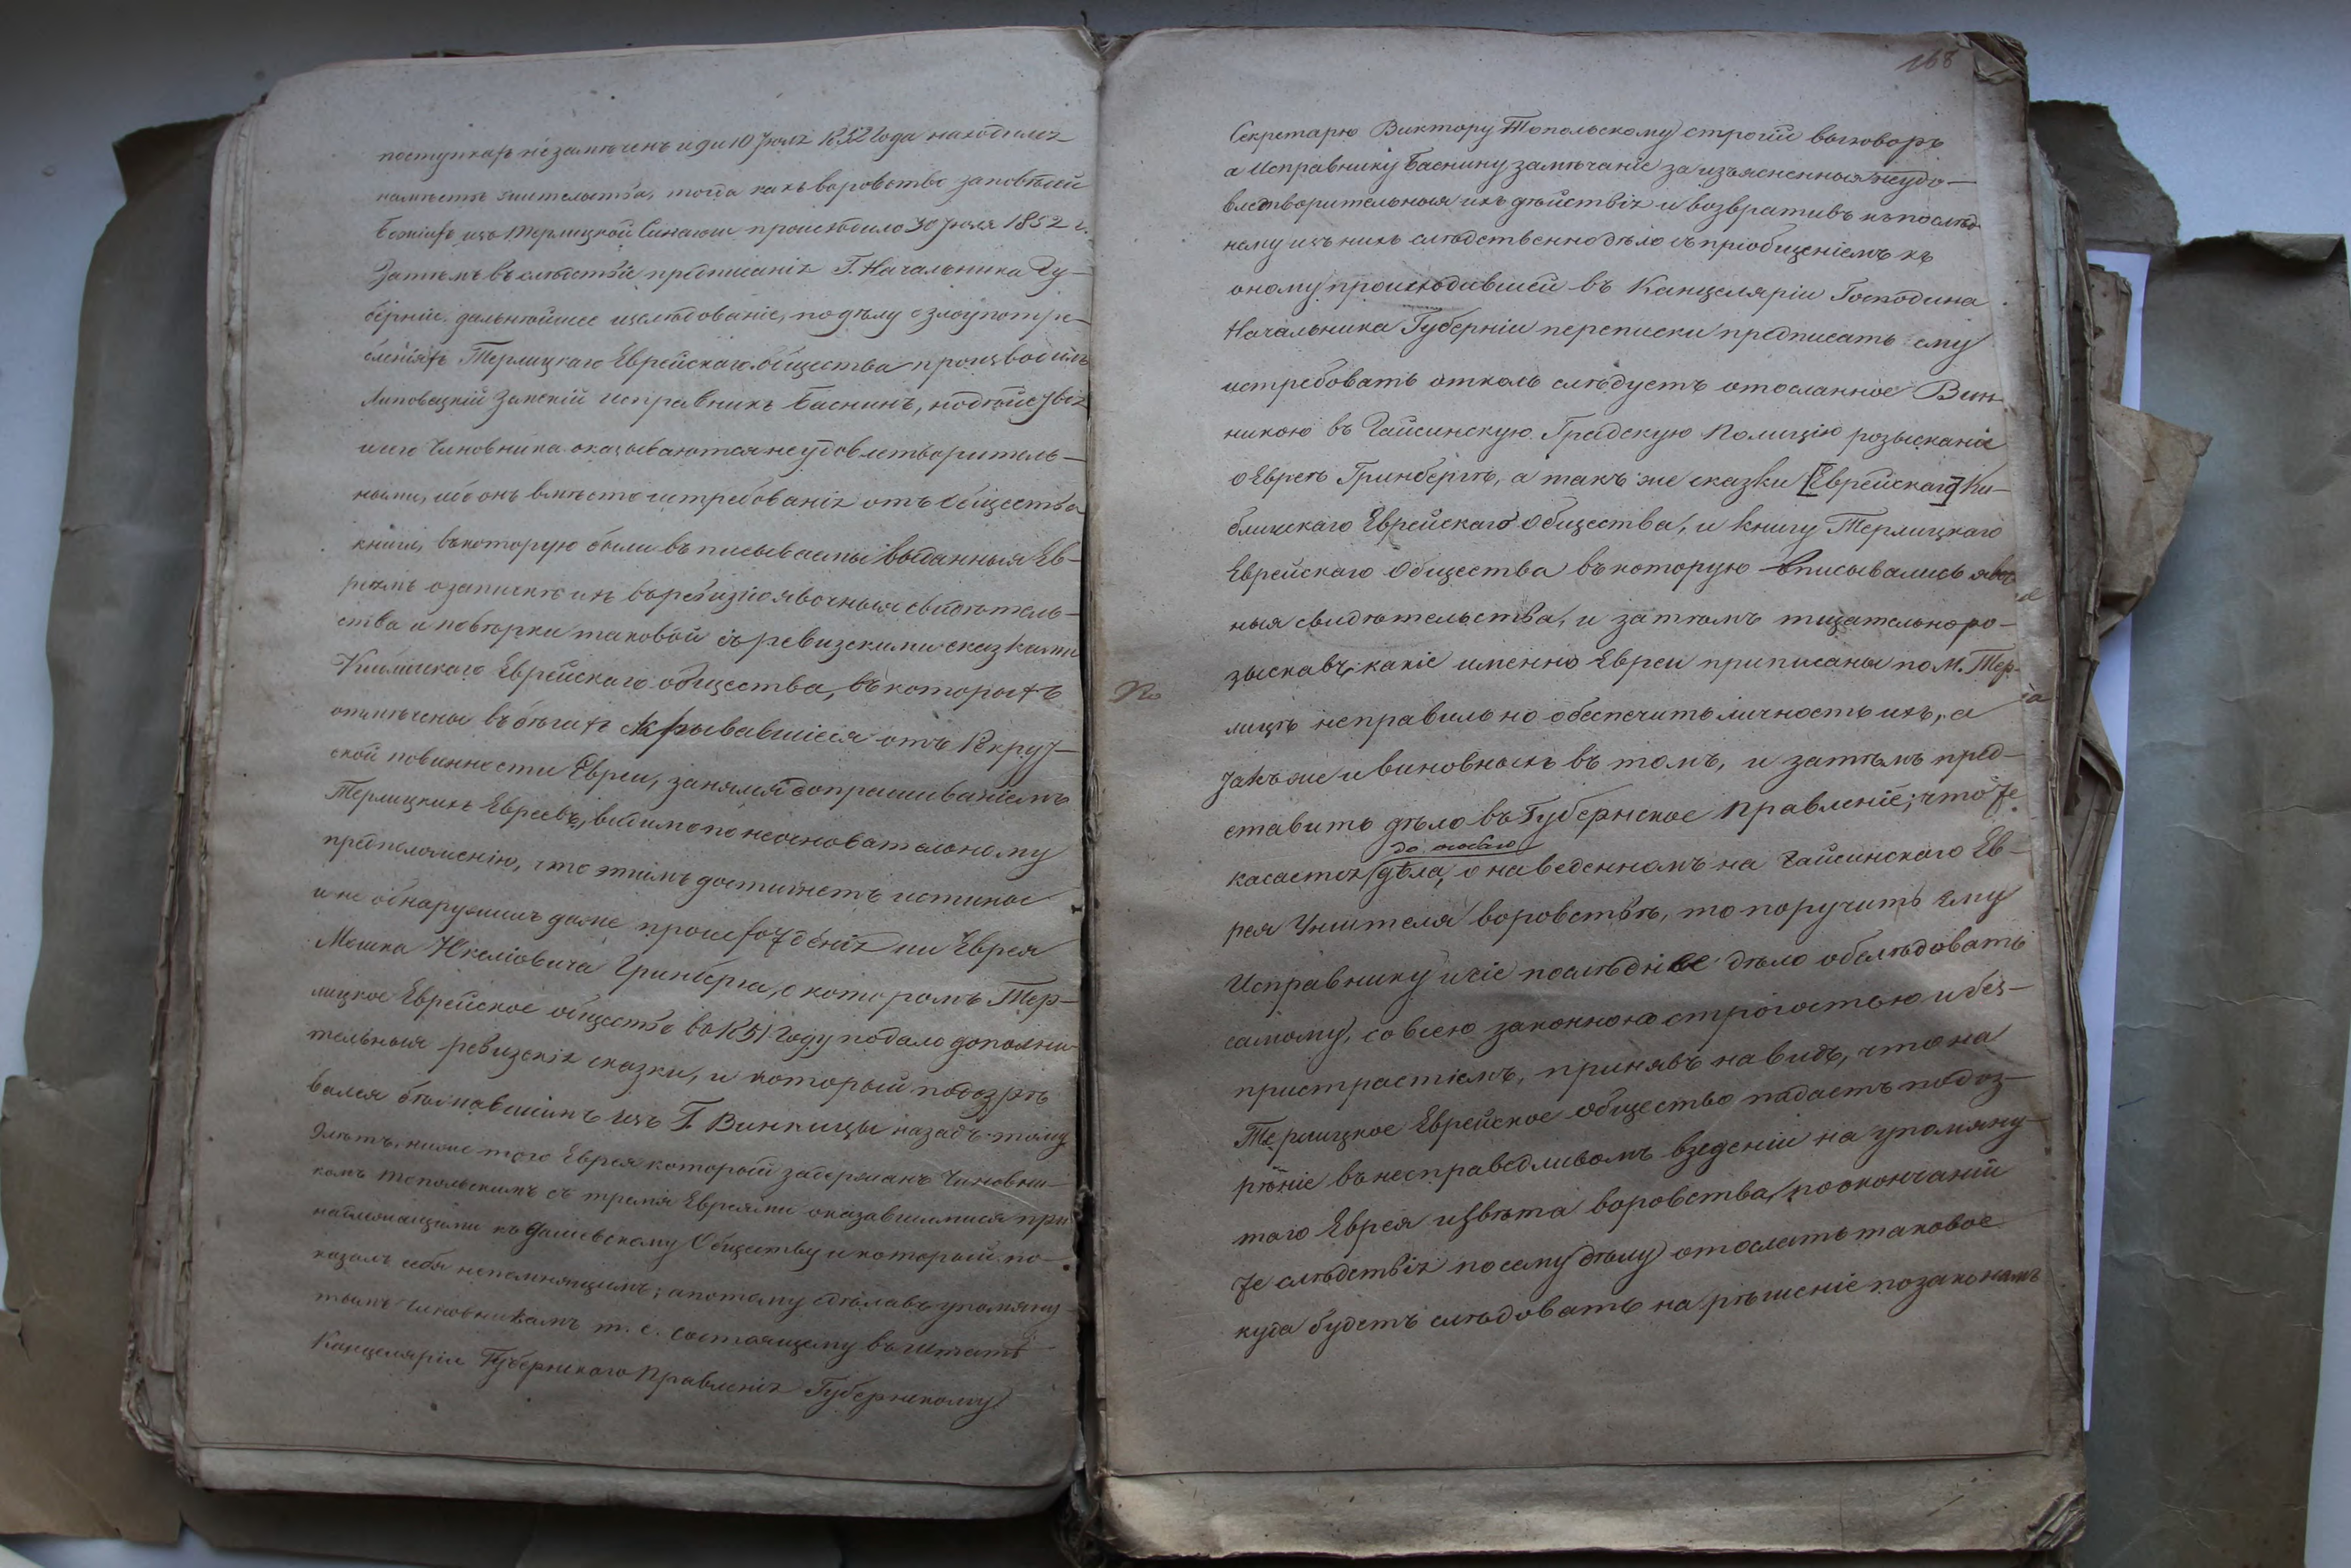 поступкахъ незамѣченъ и до 10 Іюля 1852 года находился
намѣстѣ жительства, тогда какъ воровство заповѣдей
Божіихъ изъ Терлицкой Синагоги происходило 30 Іюля 1852 г.
Затѣмъ въ слѣдствіе предписанія Г. Начальника Гу-
берніи дальнѣйшее изслѣдованіе, по дѣлу о злоупотре-
бленіяхъ Терлицкаго Еврейскаго общества производилъ
Липовецкій Земскій исправникъ Баснинъ, но дѣйствія
и сего Чиновника оказываются неудовлетворитель-
ными, ибо онъ вмѣсто истребованія отъ Общества
книги, въ которую были въписываемы выданныя Ев-
реямъ о запискѣ ихъ въ ревизію явочныя свидѣтель-
ства и повѣрки таковой съ ревизскими сказками
Кубличскаго Еврейскаго общества, въ которыхъ
отмѣчены въ бѣгахъ скрывавшіеся отъ Рекрут-
ской повинности Евреи, занялся допрашиваніемъ
Терлицкихъ Евреевъ, видимо по неосновательному
предположенію, что этимъ достигнетъ истиное
и не обнаружилъ даже происхожденія ни Еврея
Мошка Нкеліовича Гринберга, о которомъ Тер-
лицкое Еврейское общество въ 1851 году подало дополни-
тельныя ревизскія сказки, и который подозрѣ
вался бѣжавшимъ изъ Г. Винницы назадъ тому
9 лѣтъ, ниже того Еврея который задержанъ Чиновни-
комъ Топольскимъ съ тремя Евреями оказавшимися при
надлежащими къ Дашевскому Обществу и который по-
казалъ себя непомнящимъ; а потому сдѣлавъ упомяну-
тымъ чиновникамъ т. е. состоящему въ штатѣ
Канцеляріи Губернскаго Правленія Губернскому
168
Секретарю Виктору Топольскому строгій выговоръ
а Исправнику Баснину замѣчаніе за изъясненныя неудо-
влетворительныя ихъ дѣйствія и возвративъ къ послѣд
нему изъ нихъ слѣдственно дѣло съ пріобщеніемъ къ
оному происходившей въ Канцеляріи Господина
Начальника Губерніи переписки предписать ему
истребовать отколь слѣдуетъ отосланное Вин-
никою въ Гайсинскую Градскую Полицію розысканіе
о Евреѣ Гринбергѣ, а такъ же сказки [Еврейскаго] Ку-
бличскаго Еврейскаго Общества, и книгу Терлицкаго
Еврейскаго Общества въ которую вписывались явоч
ныя свидѣтельства, и затѣмъ тщательно ро-
зыскавъ, какіе именно Евреи приписаны по М. Тер-
лицѣ неправильно обеспечить личность ихъ, а
такъ же и виновныхъ въ томъ, и затѣмъ пред-
ставить дѣло въ Губернское Правленіе; что же
до особаго
касается дѣла, о наведенномъ на Гайсинского Ев-
рея Учителя воровствѣ, то поручить ему
Исправнику и сіе послѣднее дѣло обслѣдовать
самому, со всею законною строгостью и без-
пристрастіемъ, принявъ на видъ, что на
Терлицкое Еврейское общество падаетъ подоз-
рѣніе въ несправедливомъ взведеніи на упомяну-
таго Еврея извѣта воровства, по окончаніи
же слѣдствія по сему дѣлу отослать таковое
куда будетъ слѣдовать на рѣшеніе по законамъ